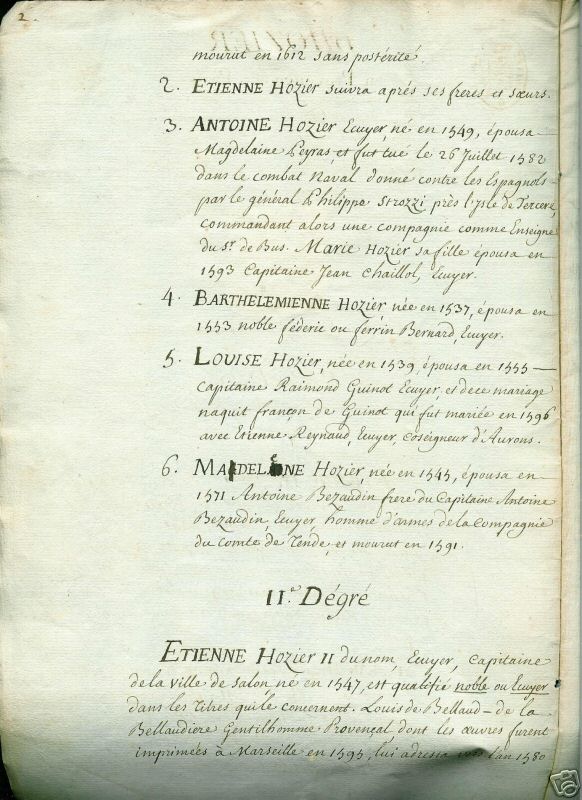 2.
mourut en 1612 sans postérité.
2. ETIENNE Hozier suivra aprés ses freres et sœurs.
3. ANTOINE Hozier Ecuyer, né en 1549, épousa
Magdelaine Peyras, et fut tué le 26 Juillet 1582
dans le combat Naval donné contre les Espagnols
par le général Philippe Strozzi près l'Isle de Tercere,
commandant alors une compagnie comme Enseigne
du Sr. de Bus. Marie Hozier sa fille épousa en
1593 Capitaine Jean Chaillol, Ecuyer.
4. BARTHELEMIENNE Hozier née en 1537, épousa en
1553 noble féderic ou ferrin Bernard, Ecuyer.
5. LOUISE Hozier, née en 1539, épousa en 1555 —
capitaine Raimond Guinot Ecuyer, et de ce mariage
naquit françon de Guinot qui fut mariée en 1596
avec Etienne Reynaud, Ecuyer, Coseigneur d'Aurons.
6. MAGDELENE Hozier, née en 1545, épousa en
1571 Antoine Bezaudin frere du Capitaine Antoine
Bezaudin, Ecuyer, homme d'armes de la Compagnie
du Comte de Tende, et mourut en 1591.
II.e Dégré
ETIENNE Hozier II du nom, Ecuyer, Capitaine
de la ville de Salon né en 1547, est qualifié noble ou Ecuyer
dans les titres qui le concernent. Louis de Bellaud - de la
Bellaudiere Gentilhomme Provençal dont les œuvres furent
imprimées à Marseille en 1595, lui adressa l'an 1580